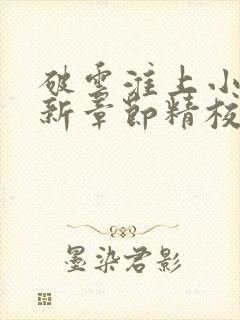 破雲淮上小
新章節精校
墨染君影